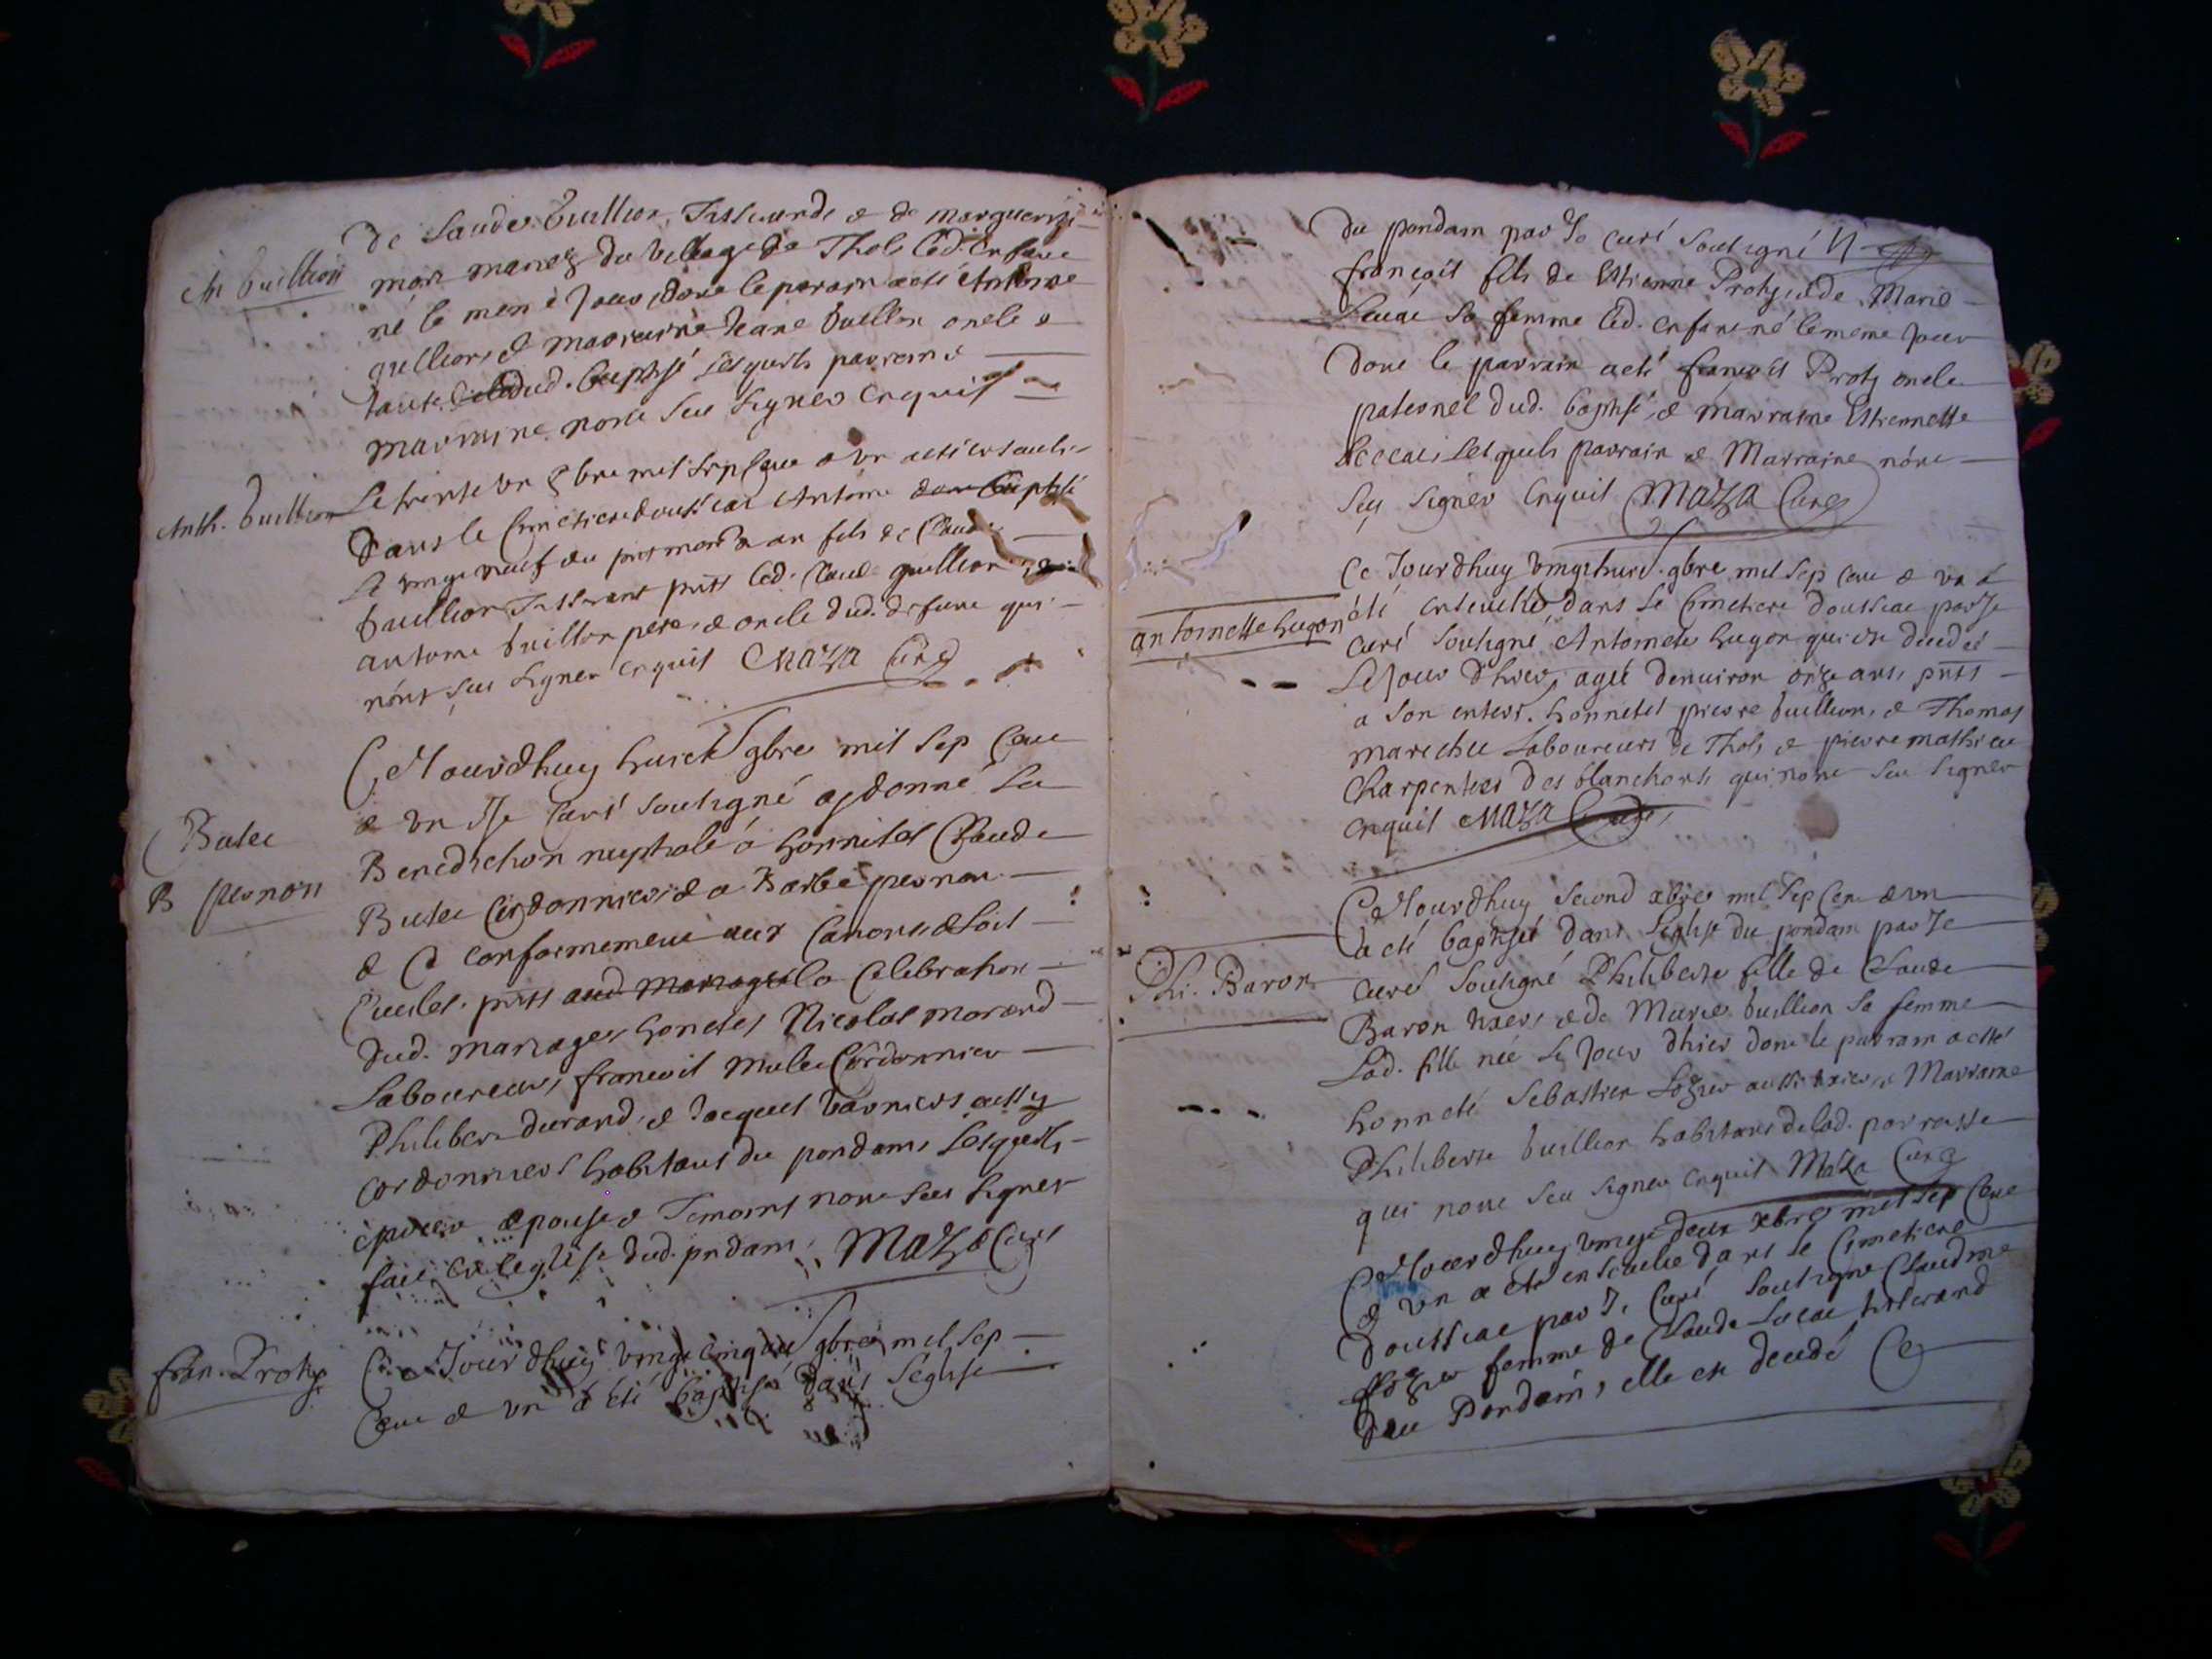 de Claude Vuillion, Tisserande & de Marguerite
An Vuillion
mariez du village de Thols led. enfant
né le meme Jour, dont le parrain a eté Antoine
Vuillion, & marraine Jeane Vuillion oncle &
tante dud. baptisé lesquels parrain &
marraine n'ont sceu signer enquis
Anth. Vuillion
Le trente un 8bre mil sept cent & un a eté enseveli
dans le cimetiere doussiat Antoine
le vingt neuf du pnt mois & an fils de Claude
Vuillion Tisserant pnts led. Claud Vuillion, &
Antoine Vuillion pere, & oncle dud. defunt qui
n'ont sceu signer enquis Maza Curé
Ce Jourdhuy huict 9bre mil sep cent
& un Je Curé soutsigné ay donné la
Butec
Benediction nuptiale à honnetes Claude
B pernon
Butec Cordonnier & a Barbe pernon
& ce conformement aux Canons & Loix
pnts aud. mariage la celebration
dud. mariage, honetes Nicolas morand
Laboureur, francois mulec Cordonnier
Philibert durand, & Jacques Varniers aussy
cordonniers habitans du pondain, lesquels
époux & epouse & Temoins n'ont sceu signer
fait en l'eglise dud. pndain, Maza Curé
fran. Protz
Ce Jourdhuy vingt cinq 9bre mil sep
cent & un à eté baptisé dans l'eglise
du pondain par Je curé soutsigné
françois fils de Estienne Protz, & de Marie
sa femme led. enfant né le meme Jour
dont le parrain a eté françois Protz oncle
paternel dud. baptisé, & marraine Estiennette
lesquels parrain & Marraine n'ont
sceu signer enquis Maza Curé
Ce Jourdhuy vingt huict 9bre mil sep cent & un à
antoinette hugon
été ensevelie dans le Cimetiere doussiat par Je
curé soutsigné, Antoinette hugon qui est decedeé
le Jour d'hier, ageé denviron onze ans, pnts
a son enterr. honnetes pierre Vuillion, & Thomas
marechel Laboureurs de Thols, & pierre mathieu
Charpentier des blanchons, qui n'ont sceu signer
enquis Maza Curé,
Ce Jourdhuy second xbre mil sep cent & un
a eté baptisée dans l'eglise du pondain par Je
Phi. Baron
curé soutsigné Philiberte fille de Claude
Baron txier, & de Marie Vuillion sa femme
lad. fille née le Jour dhier dont le parrain a eté
honneté Sebastien Lozier aussi txier, & Marraine
Philiberte Vuillion habitans de lad. parroisse
qui n'ont sceu signer enquis Maza Curé
Ce Jourdhuy vingt deux xbre mil sep cent
& un a eté ensevelie dans le Cimetiere
doussiat par Je Curé soutsigné Claudine
Lozier femme de Claude Locat tisserand
du Pondain, elle est decedé Ce